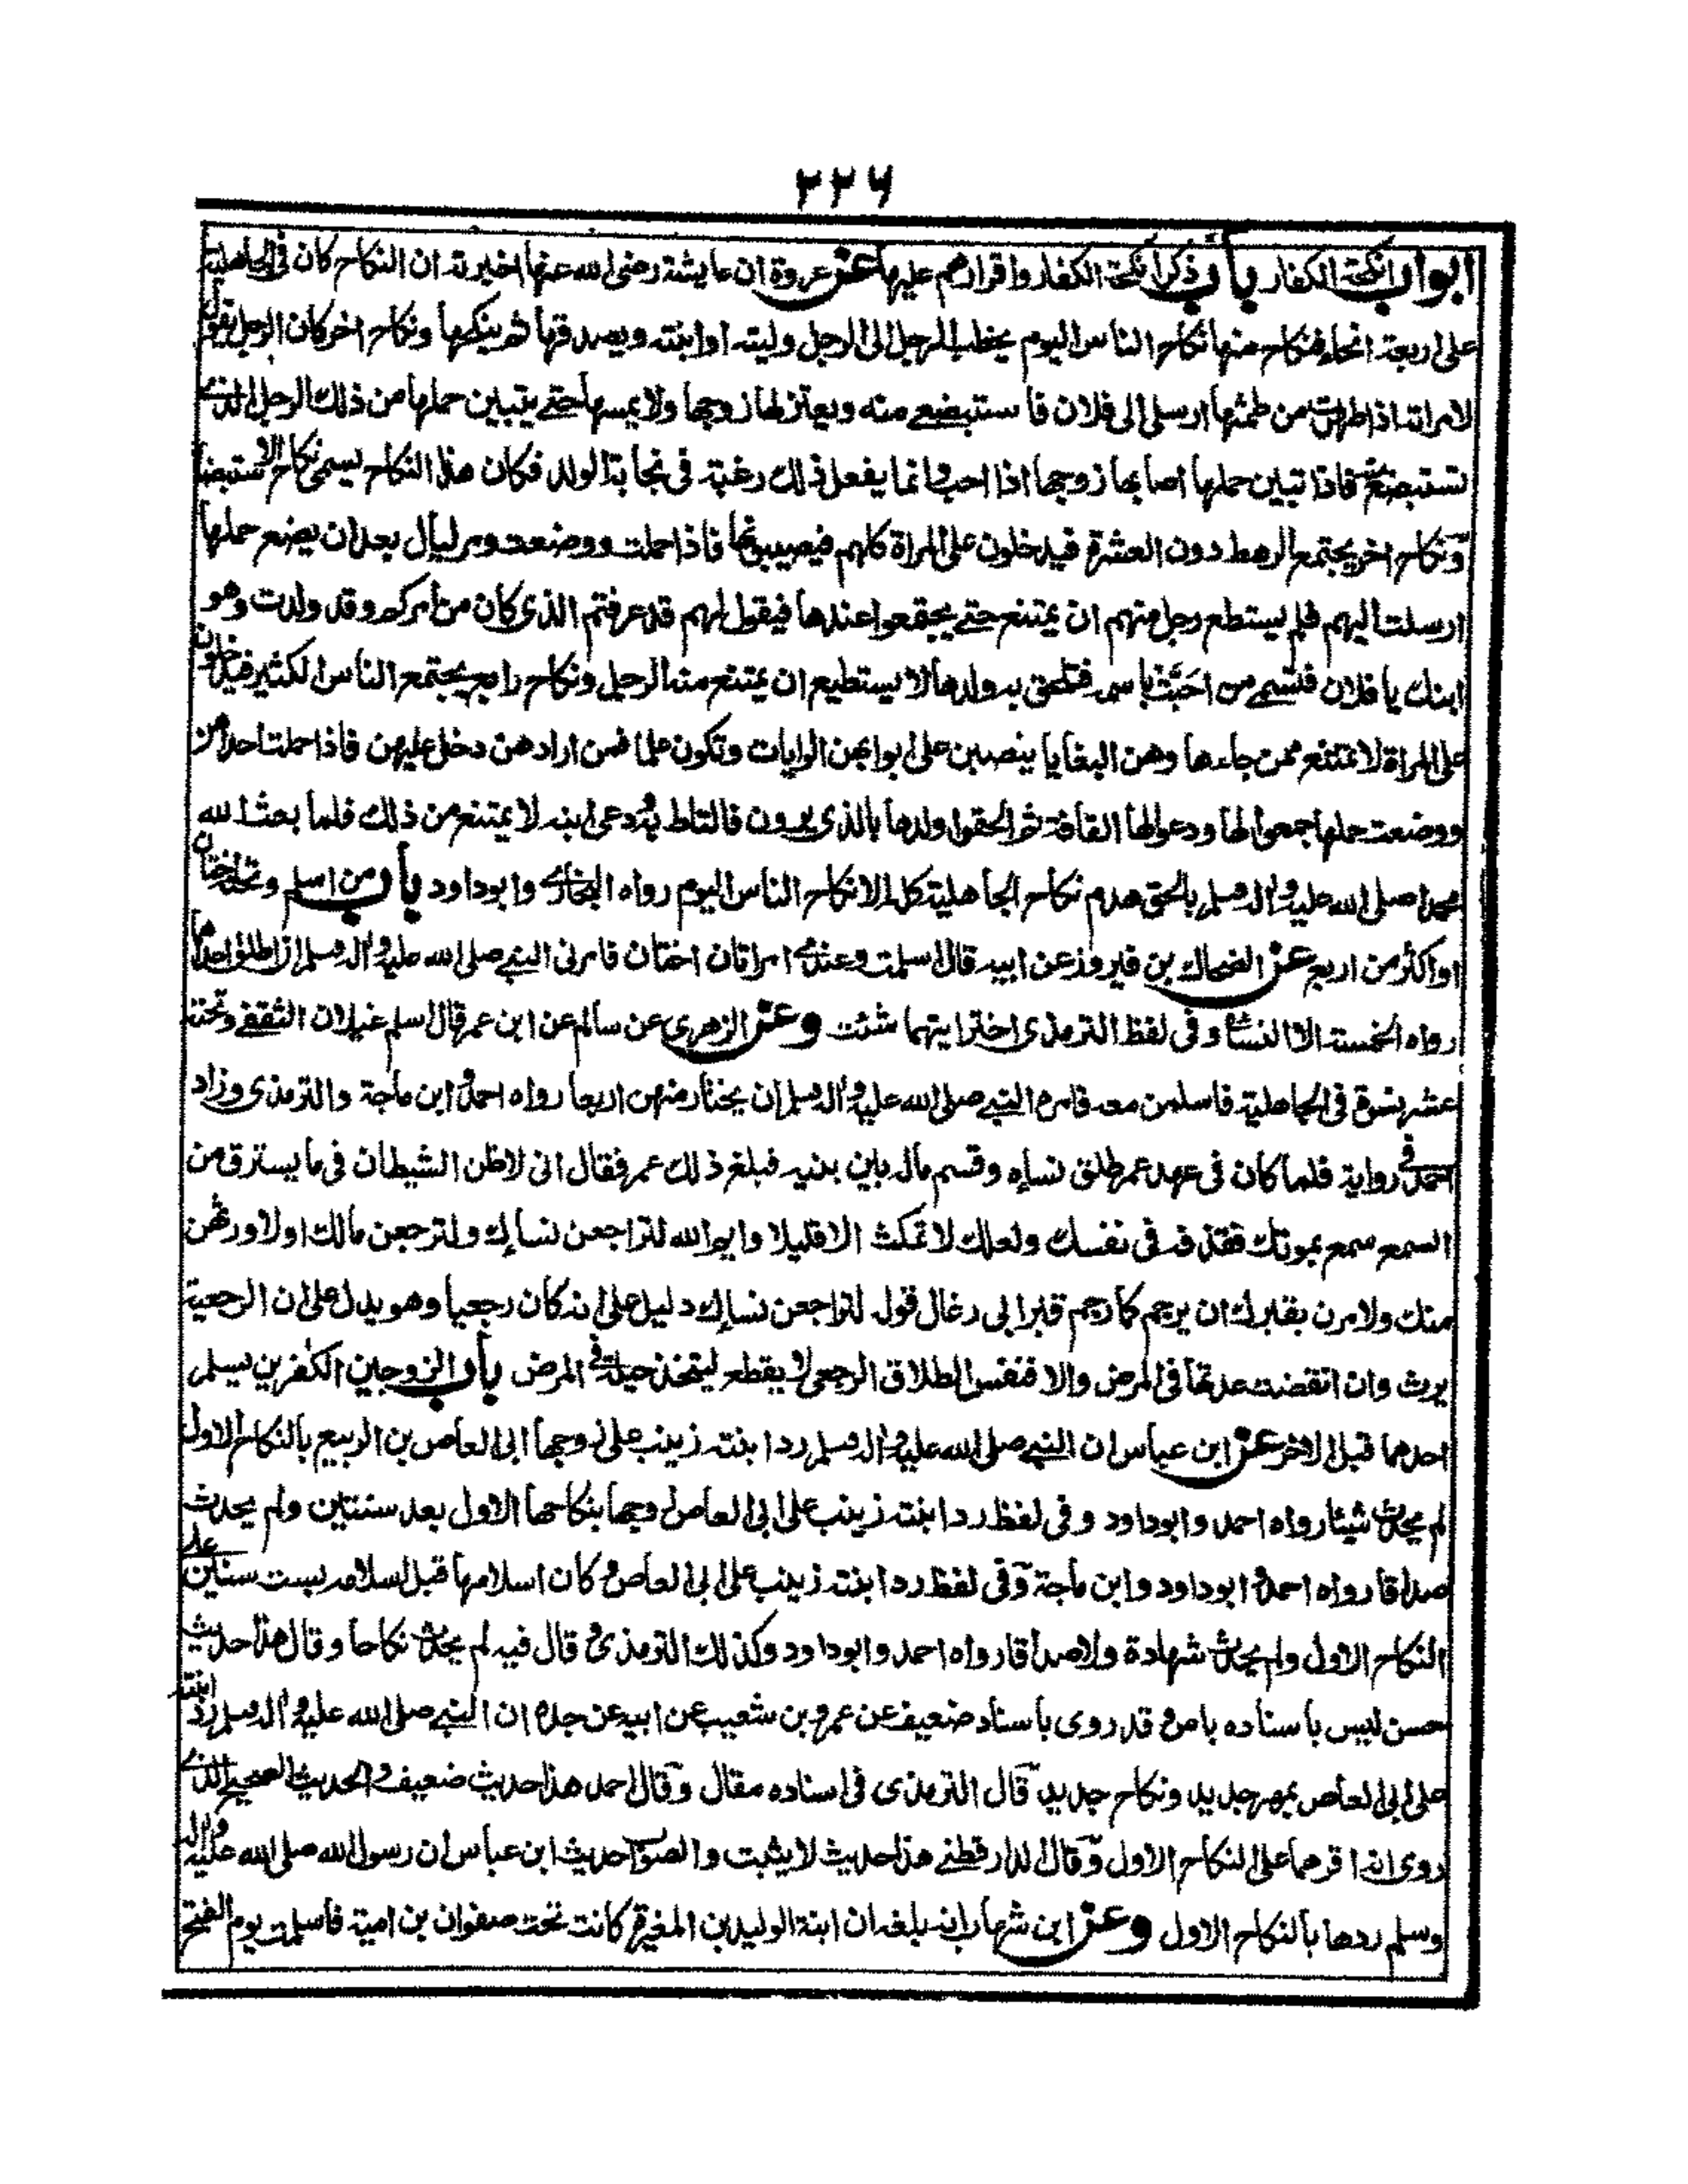 ٢٢٦
ابواب انكحة الكفار باب ذكر انكحة الكفار واقرارهم عليها عن عروة ان عايشة رضى الله عنها اخبرته ان النكاح كان فى الجاهلية
على اربعة انحاء فنكاح منها نكاح الناس اليوم يخطب الرجل الى الرجل وليته او ابنته ويصدقها ثم ينكحها ونكاح اخر كان الرجل يقول
لامراته اذا طهرت من طمثها ارسلى الى فلان فاستبضعى منه ويعتزلها زوجها ولا يمسها حتى يتبين حملها من ذلك الرجل الذى
تستبضع منه فاذا تبين حملها اصابها زوجها اذا احب وانما يفعل ذلك رغبة فى نجابة الولد فكان هذا النكاح يسمى نكاح الاستبضاع
ونكاح اخر يجتمع الرهط دون العشرة فيدخلون على المراة كلهم فيصيبونها فاذا حملت ووضعت ومر ليال بعد ان يضع حملها
ارسلت اليهم فلم يستطع رجل منهم ان يمتنع حتى يجتمعوا عندها فيقول لهم قد عرفتم الذى كان من امركم وقد ولدت وهو
ابنك يا فلان فتسمى من احبت باسمه فتلحق به ولدها لا يستطيع ان يمتنع منه الرجل ونكاح رابع يجتمع الناس الكثير فيدخلون
على المراة لا تمتنع ممن جاءها وهن البغايا ينصبن على ابوابهن الرايات وتكون علما فمن ارادهن دخل عليهن فاذا حملت احداهن
ووضعت حملها جمعوا لها ودعوا لها القافة ثم الحقوا ولدها بالذى يرون فالتاط به ودعى ابنه لا يمتنع من ذلك فلما بعث الله
محمدا صلى الله عليه واله وسلم بالحق هدم نكاح الجاهلية كله الا نكاح الناس اليوم رواه البخارى وابوداود باب من اسلم وتحته اختان
او اكثر من اربع عن الضحاك بن فيروز عن ابيه قال اسلمت وعندى امراتان اختان فامرنى النبى صلى الله عليه واله وسلم ان اطلق احداهما
رواه الخمسة الا النسائى وفى لفظ الترمذى اختر ايتهما شئت وعن الزهرى عن سالم عن ابن عمر قال اسلم غيلان الثقفى وتحته
عشر نسوة فى الجاهلية فاسلمن معه فامره النبى صلى الله عليه واله وسلم ان يختار منهن اربعا رواه احمد وابن ماجة والترمذى وزاد
احمد فى رواية فلما كان فى عهد عمر طلق نساءه وقسم ماله بين بنيه فبلغ ذلك عمر فقال انى لاظن الشيطان فى ما يسترق من
السمع سمع بموتك فقذفه فى نفسك ولعلك لا تمكث الا قليلا وايم الله لتراجعن نساءك ولترجعن مالك او لاورثهن
منك ولامرن بقبرك ان يرجم كما رجم قبر ابى رغال قوله لتراجعن نساءك دليل على انه كان رجعيا وهو يدل على ان الرجعية
يرث وان انقضت عدتها فى المرض والا فنفس الطلاق الرجعى لا يقطع ليتخذ حيلة فى المرض باب الزوجين الكفرين يسلم
احدهما قبل الاخر عن ابن عباس ان النبى صلى الله عليه واله وسلم رد ابنته زينب على زوجها ابى العاص بن الربيع بالنكاح الاول
لم يحدث شيئا رواه احمد وابوداود وفى لفظ رد ابنته زينب على ابى العاص زوجها بنكاحها الاول بعد سنتين ولم يحدث
صداقا رواه احمد وابوداود وابن ماجة وفى لفظ رد ابنته زينب على ابى العاص وكان اسلامها قبل اسلامه بست سنين على
النكاح الاول ولم يحدث شهادة ولا صداقا رواه احمد وابوداود وكذلك الترمذى وقال فيه لم يحدث نكاحا وقال هذا حديث
حسن ليس باسناده باس وقد روى باسناد ضعيف عن عمرو بن شعيب عن ابيه عن جده ان النبى صلى الله عليه واله وسلم رد ابنته
على ابى العاص بمهر جديد ونكاح جديد قال الترمذى فى اسناده مقال وقال احمد هذا حديث ضعيف والحديث الصحيح الذى
روى انه اقرهما على النكاح الاول وقال الدارقطنى هذا حديث لا يثبت والصواب حديث ابن عباس ان رسول الله صلى الله عليه واله
وسلم ردها بالنكاح الاول وعن ابن شهاب انه بلغه ان ابنة الوليد بن المغيرة كانت تحت صفوان بن امية فاسلمت يوم الفتح